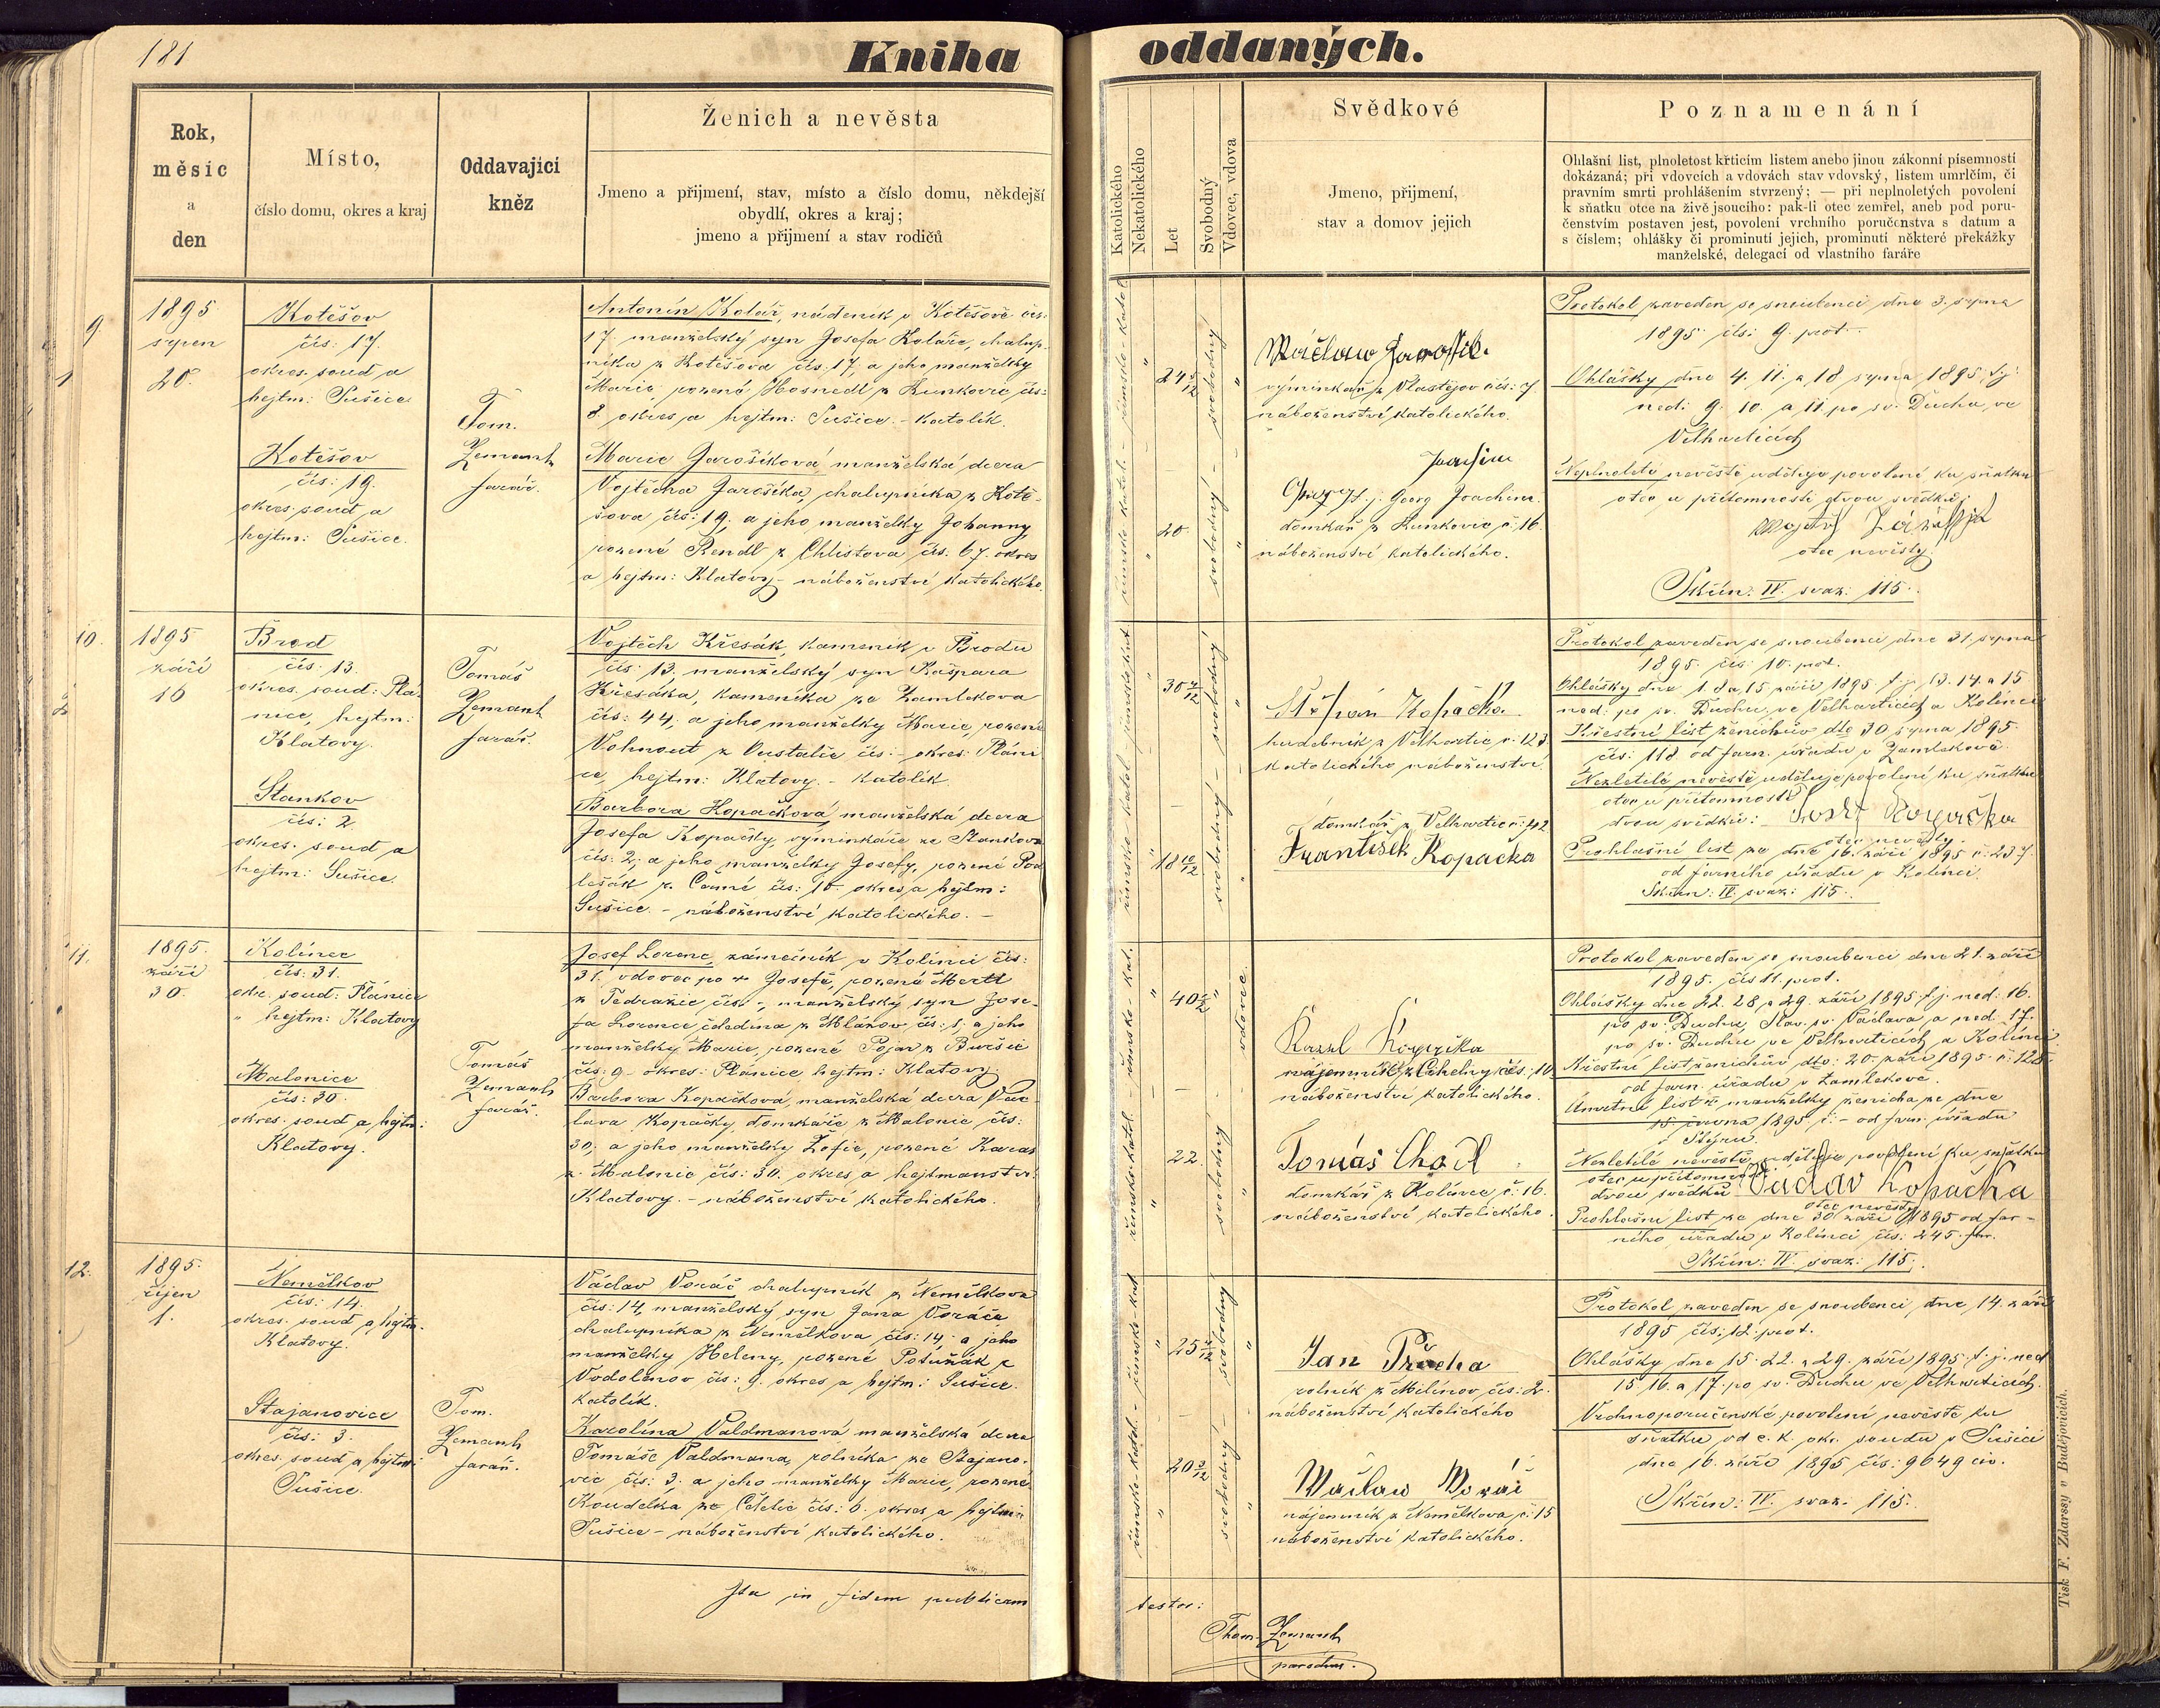 181
Kniha oddaných.
Rok,
měsíc
a
den
Místo,
číslo domu, okres a kraj
Oddavající
kněz
Ženich a nevěsta
Jmeno a přijmení, stav, místo a číslo domu, někdejší
obydlí, okres a kraj;
jmeno a přijmení a stav rodičů
Katolického
Nekatolického
Let
Svobodný
Vdovec, vdova
Svědkové
Jmeno, přijmení,
stav a domov jejich
Poznamenání
Ohlašní list, plnoletost křticím listem anebo jinou zákonní písemností
dokázaná; při vdovcích a vdovách stav vdovský, listem umrlčím, či
pravním smrti prohlášením stvrzený; — při neplnoletých povolení
k sňatku otce na živě jsoucího: pak-li otec zemřel, aneb pod poru-
čenstvím postaven jest, povolení vrchního poručenstva s datum a
s číslem; ohlášky či prominutí jejich, prominutí některé překážky
manželské, delegací od vlastního faráře
9.
1895
srpen
20.
Kotěšov
čís: 17.
okres. soud a
hejtm: Sušice
Kotěšov
čís: 19.
okres. soud a
hejtm: Sušice.
Tom.
Zemanh
farář.
Antonín Kolář, nádeník v Kotěšově čís:
17. manželský syn Josefa Koláře, chalup-
níka z Kotěšova čís. 17, a jeho manželky
Marie, rozené Hosnedl z Kunkovic čís:
8. okres a hejtm: Sušice. - katolík.
Marie Jarošíková, manželská dcera
Vojtěcha Jarošíka, chalupníka z Kotě-
šova čís: 19. a jeho manželky Johanny,
rozené Rendl z Chlistova čís. 67. okres
a hejtm: Klatovy - náboženství katolického.
24 5/12
20.
svobodný
Václaw Jarošik.
výminkář z Vlastějov čís: 7.
náboženství katolického.
Joachim
t. j. Georg Joachim
domkář z Kunkovic č. 16.
náboženství katolického.
Protokol zaveden se snoubenci dne 3. srpna
1895 čís: 9. prot.
Ohlášky dne 4. 11. a 18 srpna 1895 t. j.
ned: 9. 10. a 11. po sv. Duchu ve
Velharticích
Neplnoleté nevěstě uděluje povolení ku sňatku
otec u přítomnosti dvou svědků:
otec nevěsty.
Skřín: IV. svaz: 115.
10.
1895
září
16
Brod
čís: 13.
okres. soud: Plá-
nice, hejtm:
Klatovy.
Stankov
čís: 2
okres. soud a
hejtm: Sušice.
Tomáš
Zemanh
farář.
Vojtěch Křesák, kameník v Brodu
čís: 13. manželský syn Kašpara
Křesáka, kameníka ze Zamlekova
čís: 44, a jeho manželky Marie, rozené
Vohnout z Oustalče čís: - okres. Pláni-
ce, hejtm: Klatovy. - Katolík
Barbora Kopačková, manželská dcera
Josefa Kopačky, výminkáře ze Stankova
čís: 2, a jeho manželky Josefy, rozené Pod-
lešák z Černé čís: 10 okres a hejtm:
Sušice. - náboženství katolického. -
18 10/12
svobodný
Štěpán Kopačka.
hudebník z Velhartic č: 123
katolického náboženství
domkář z Velhartic č: 42
František Kopačka
Protokol zaveden se snoubenci dne 31. srpna
1895. čís: 10. prot.
Ohlášky dne 1. 8 a 15 září 1895 t. j. 13. 14. a 15
ned: po sv. Duchu ve Velharticích a Kolinci
Křestní list ženichův dto 30 srpna 1895.
čís: 118 od farn. úřadu v Zamlekově.
Nezletilé nevěstě uděluje povolení ku sňatku
otec u přítomnosti
dvou svědků: Josef Kopačka
otec nevěsty.
Prohlašní list ze dne 16. září 1895 č: 237.
od farního úřadu v Kolinci.
Skřín: IV svaz: 115.
11.
1895.
září
30.
Kolinec
čís: 31.
okr. soud: Plánice
" hejtm: Klatovy
Malonice
čís: 30.
okres. soud a hejtm:
Klatovy.
Tomáš
Zemanh
farář.
Josef Lorenc, zámečník v Kolinci čís:
31. vdovec po + Josefě, rozené Mertl
z Tedražic čís. -, manželský syn Jose-
fa Lorence čeledína z Mlázov čís: 1. a jeho
manželky Marie, rozené Pojar z Buršic
čís: 9. okres: Plánice, hejtm: Klatovy
Barbora Kopačková, manželská dcera Vác-
lava Kopačky, domkáře z Malonic čís:
30, a jeho manželky Žofie, rozené Karas
z Malonic čís: 30. okres a hejtmanství
Klatovy. - náboženství katolického.
22.
vdovec
svobodný
Karel Kopačka
nájemník z Cihelny čís: 10
náboženství katolického.
Tomáš Chodl
domkář z Kolince č: 16.
náboženství katolického.
Protokol zaveden se snoubenci dne 21. září
1895. čís 11. prot.
Ohlášky dne 22. 28, a 29. září 1895 t. j. ned: 16.
po sv. Duchu, Slav. sv. Václava a ned: 17.
po sv. Duchu ve Velharticích a Kolinci
Křestní list ženichův dto: 20. září 1895 č: 128
od farn. úřadu v Zamlekově.
Úmrtní list + manželky ženicha ze dne
15 června 1895 č: - od farn. úřadu
v Štýru.
Nezletilé nevěstě uděluje povolení ku sňatku
otec u přítomnosti
dvou svědků: Václav Kopačka
otec nevěsty
Prohlašní list ze dne 30 září 1895 od far-
ního úřadu v Kolinci čís: 245.
Skřín: IV. svaz: 115.
12.
1895.
říjen
1.
Nemělkov
čís: 14.
okres. soud a hejtm.
Klatovy.
Stajanovice
čís: 3.
okres. soud a hejtm:
Sušice.
Tom.
Zemanh
farář.
Václav Voráč chalupník z Nemělkova
čís: 14, manželský syn Jana Voráče
chalupníka z Nemělkova čís: 14. a jeho
manželky Heleny, rozené Potužák z
Vodolenov čís: 9. okres a hejtm: Sušice.
katolík.
Karolína Valdmanová manželská dcera
Tomáše Valdmana, rolníka ze Stajano-
vic čís: 3. a jeho manželky Marie, rozené
Koudelka ze Čětětic čís: 6. okres a hejtm:
Sušice - náboženství katolického.
svobodný
Jan Průcha
rolník z Milínov čís: 2.
náboženství katolického
Wáclaw Woráč
nájemník z Nemělkova č: 15
náboženství katolického.
Protokol zaveden se snoubenci dne 14. září
1895 čís: 12. prot.
Ohlášky dne 15. 22. a 29. září 1895 t. j. ned
15. 16. a 17. po sv. Duchu ve Velharticích.
Vrchnoporučenské povolení nevěstě ku
sňatku od c. k. okr. soudu v Sušici
dne 16. září 1895 čís: 9649 civ.
Skřín: IV. svaz: 115.
Ita in fidem publicam
testor:
Thom. Zemanh
parochus.
Tisk F. Zdarssy v Budějovicích.